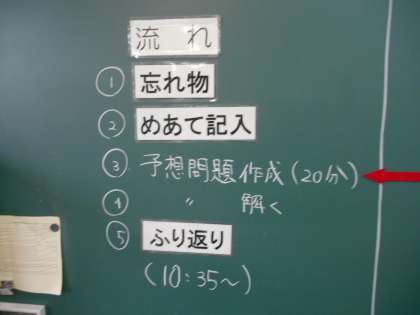 流れ
① 忘れ物
② めあて記入
③ 予想問題作成(20分)
④ 〃 解く
⑤ ふり返り
(10:35~)